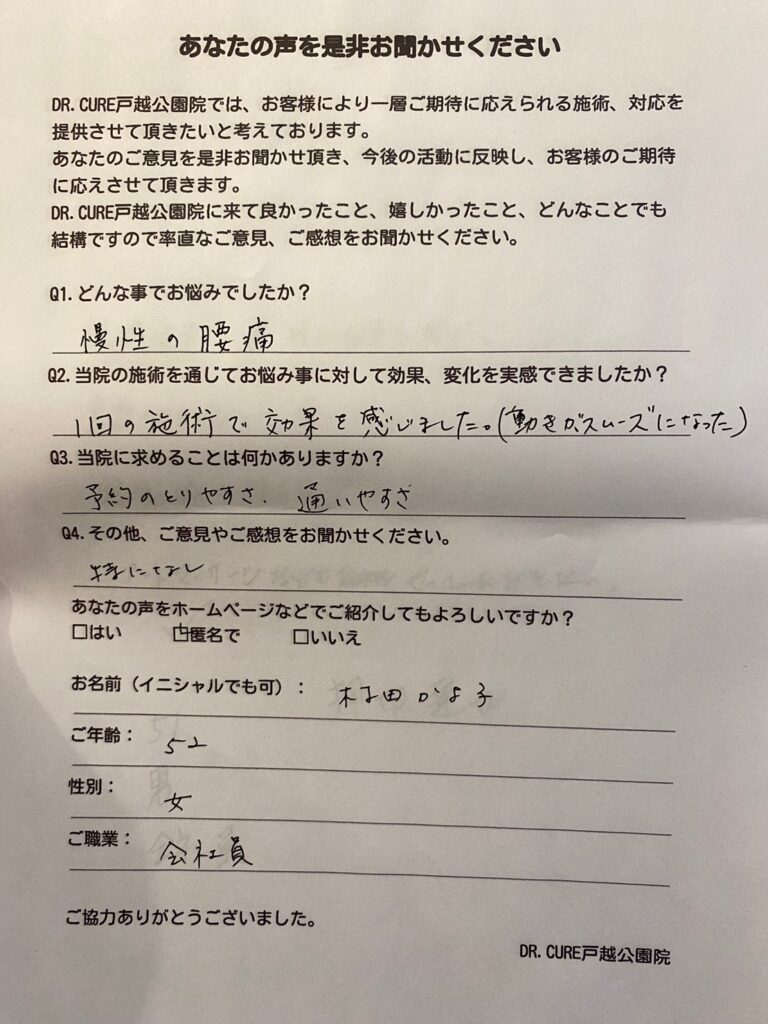 あなたの声を是非お聞かせください
DR.CURE戸越公園院では、お客様により一層ご期待に応えられる施術、対応を
提供させて頂きたいと考えております。
あなたのご意見を是非お聞かせ頂き、今後の活動に反映し、お客様のご期待
に応えさせて頂きます。
DR.CURE戸越公園院に来て良かったこと、嬉しかったこと、どんなことでも
結構ですので率直なご意見、ご感想をお聞かせください。
Q1.どんな事でお悩みでしたか？
慢性の腰痛
Q2.当院の施術を通じてお悩み事に対して効果、変化を実感できましたか？
1回の施術で効果を感じました。(動きがスムーズになった)
Q3.当院に求めることは何かありますか？
予約のとりやすさ、通いやすさ
Q4.その他、ご意見やご感想をお聞かせください。
特になし
あなたの声をホームページなどでご紹介してもよろしいですか？
□はい □匿名で □いいえ
お名前（イニシャルでも可）： 村田かよ子
ご年齢： 52
性別： 女
ご職業： 会社員
ご協力ありがとうございました。
DR.CURE戸越公園院